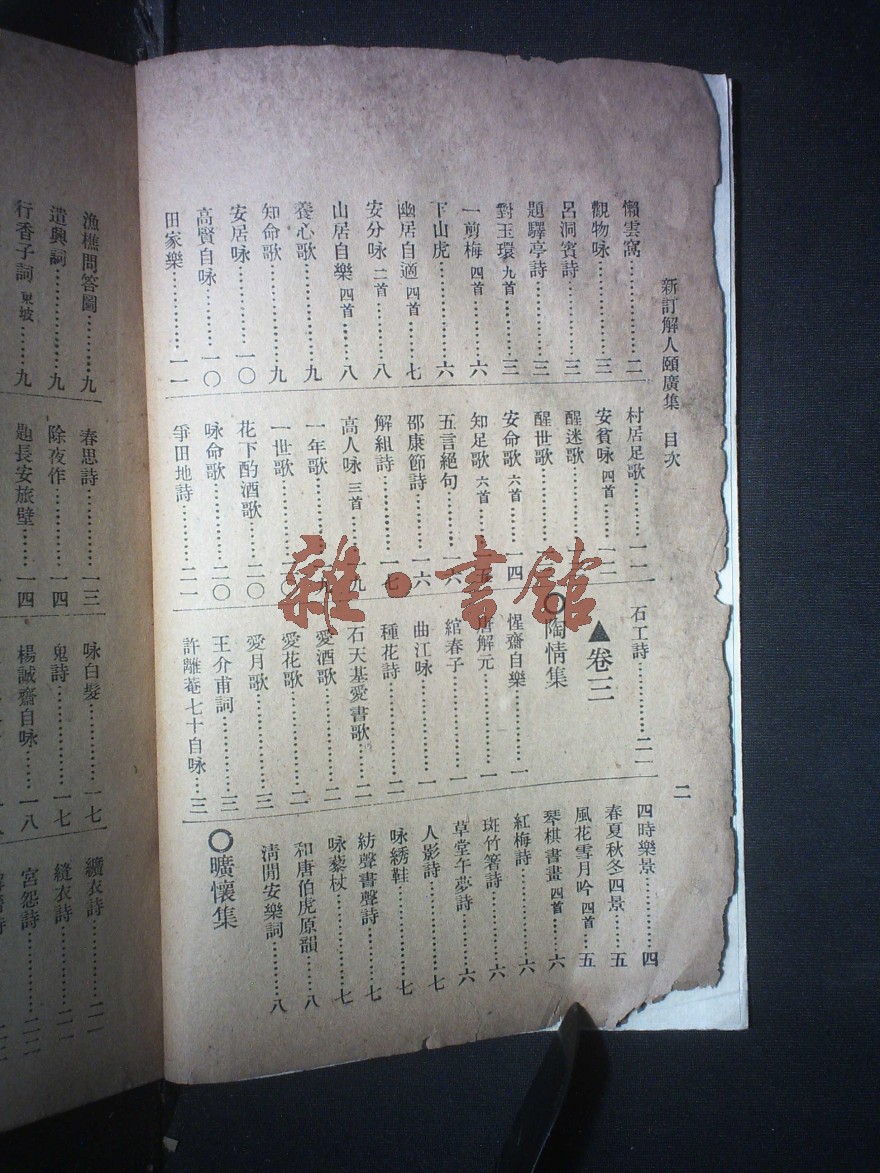 新訂解人頤廣集 目次
二
懶雲窩……二
觀物咏……三
呂洞賓詩……三
題驛亭詩……三
對玉環 九首……三
一剪梅 四首……六
下山虎……六
幽居自適 四首……七
安分咏 二首……八
山居自樂 四首……八
養心歌……九
知命歌……九
安居咏……一〇
高賢自咏……一〇
田家樂……一一
村居足歌……一二
安貧咏 四首……一三
醒迷歌
醒世歌
安命歌 六首……一四
知足歌 六首……一五
五言絕句……一六
邵康節詩……一六
解組詩……一七
高人咏 三首……一九
一年歌
一世歌……二〇
花下酌酒歌……二〇
咏命歌……二〇
爭田地詩……二一
石工詩……二一
▲卷三
○陶情集
惺齋自樂……一
唐解元……一
綰春子……一
曲江咏……一
種花詩……二
石天基愛書歌……二
愛酒歌……二
愛花歌……二
愛月歌……三
王介甫詞……三
許離菴七十自咏……三
四時樂景……四
春夏秋冬四景……五
風花雪月吟 四首……五
琴棋書畫 四首……六
紅梅詩……六
斑竹箸詩……六
草堂午夢詩……六
人影詩……七
咏綉鞋……七
紡聲書聲詩……七
咏藜杖……七
和唐伯虎原韻……八
清閒安樂詞……八
○曠懷集
漁樵問答圖……九
遣興詞……九
行香子詞 東坡……九
春思詩……一三
除夜作……一四
題長安旅壁……一四
咏白髮……一七
鬼詩……一七
楊誠齋自咏……一八
纊衣詩……二一
縫衣詩……二一
宮怨詩……二二
雜·書館